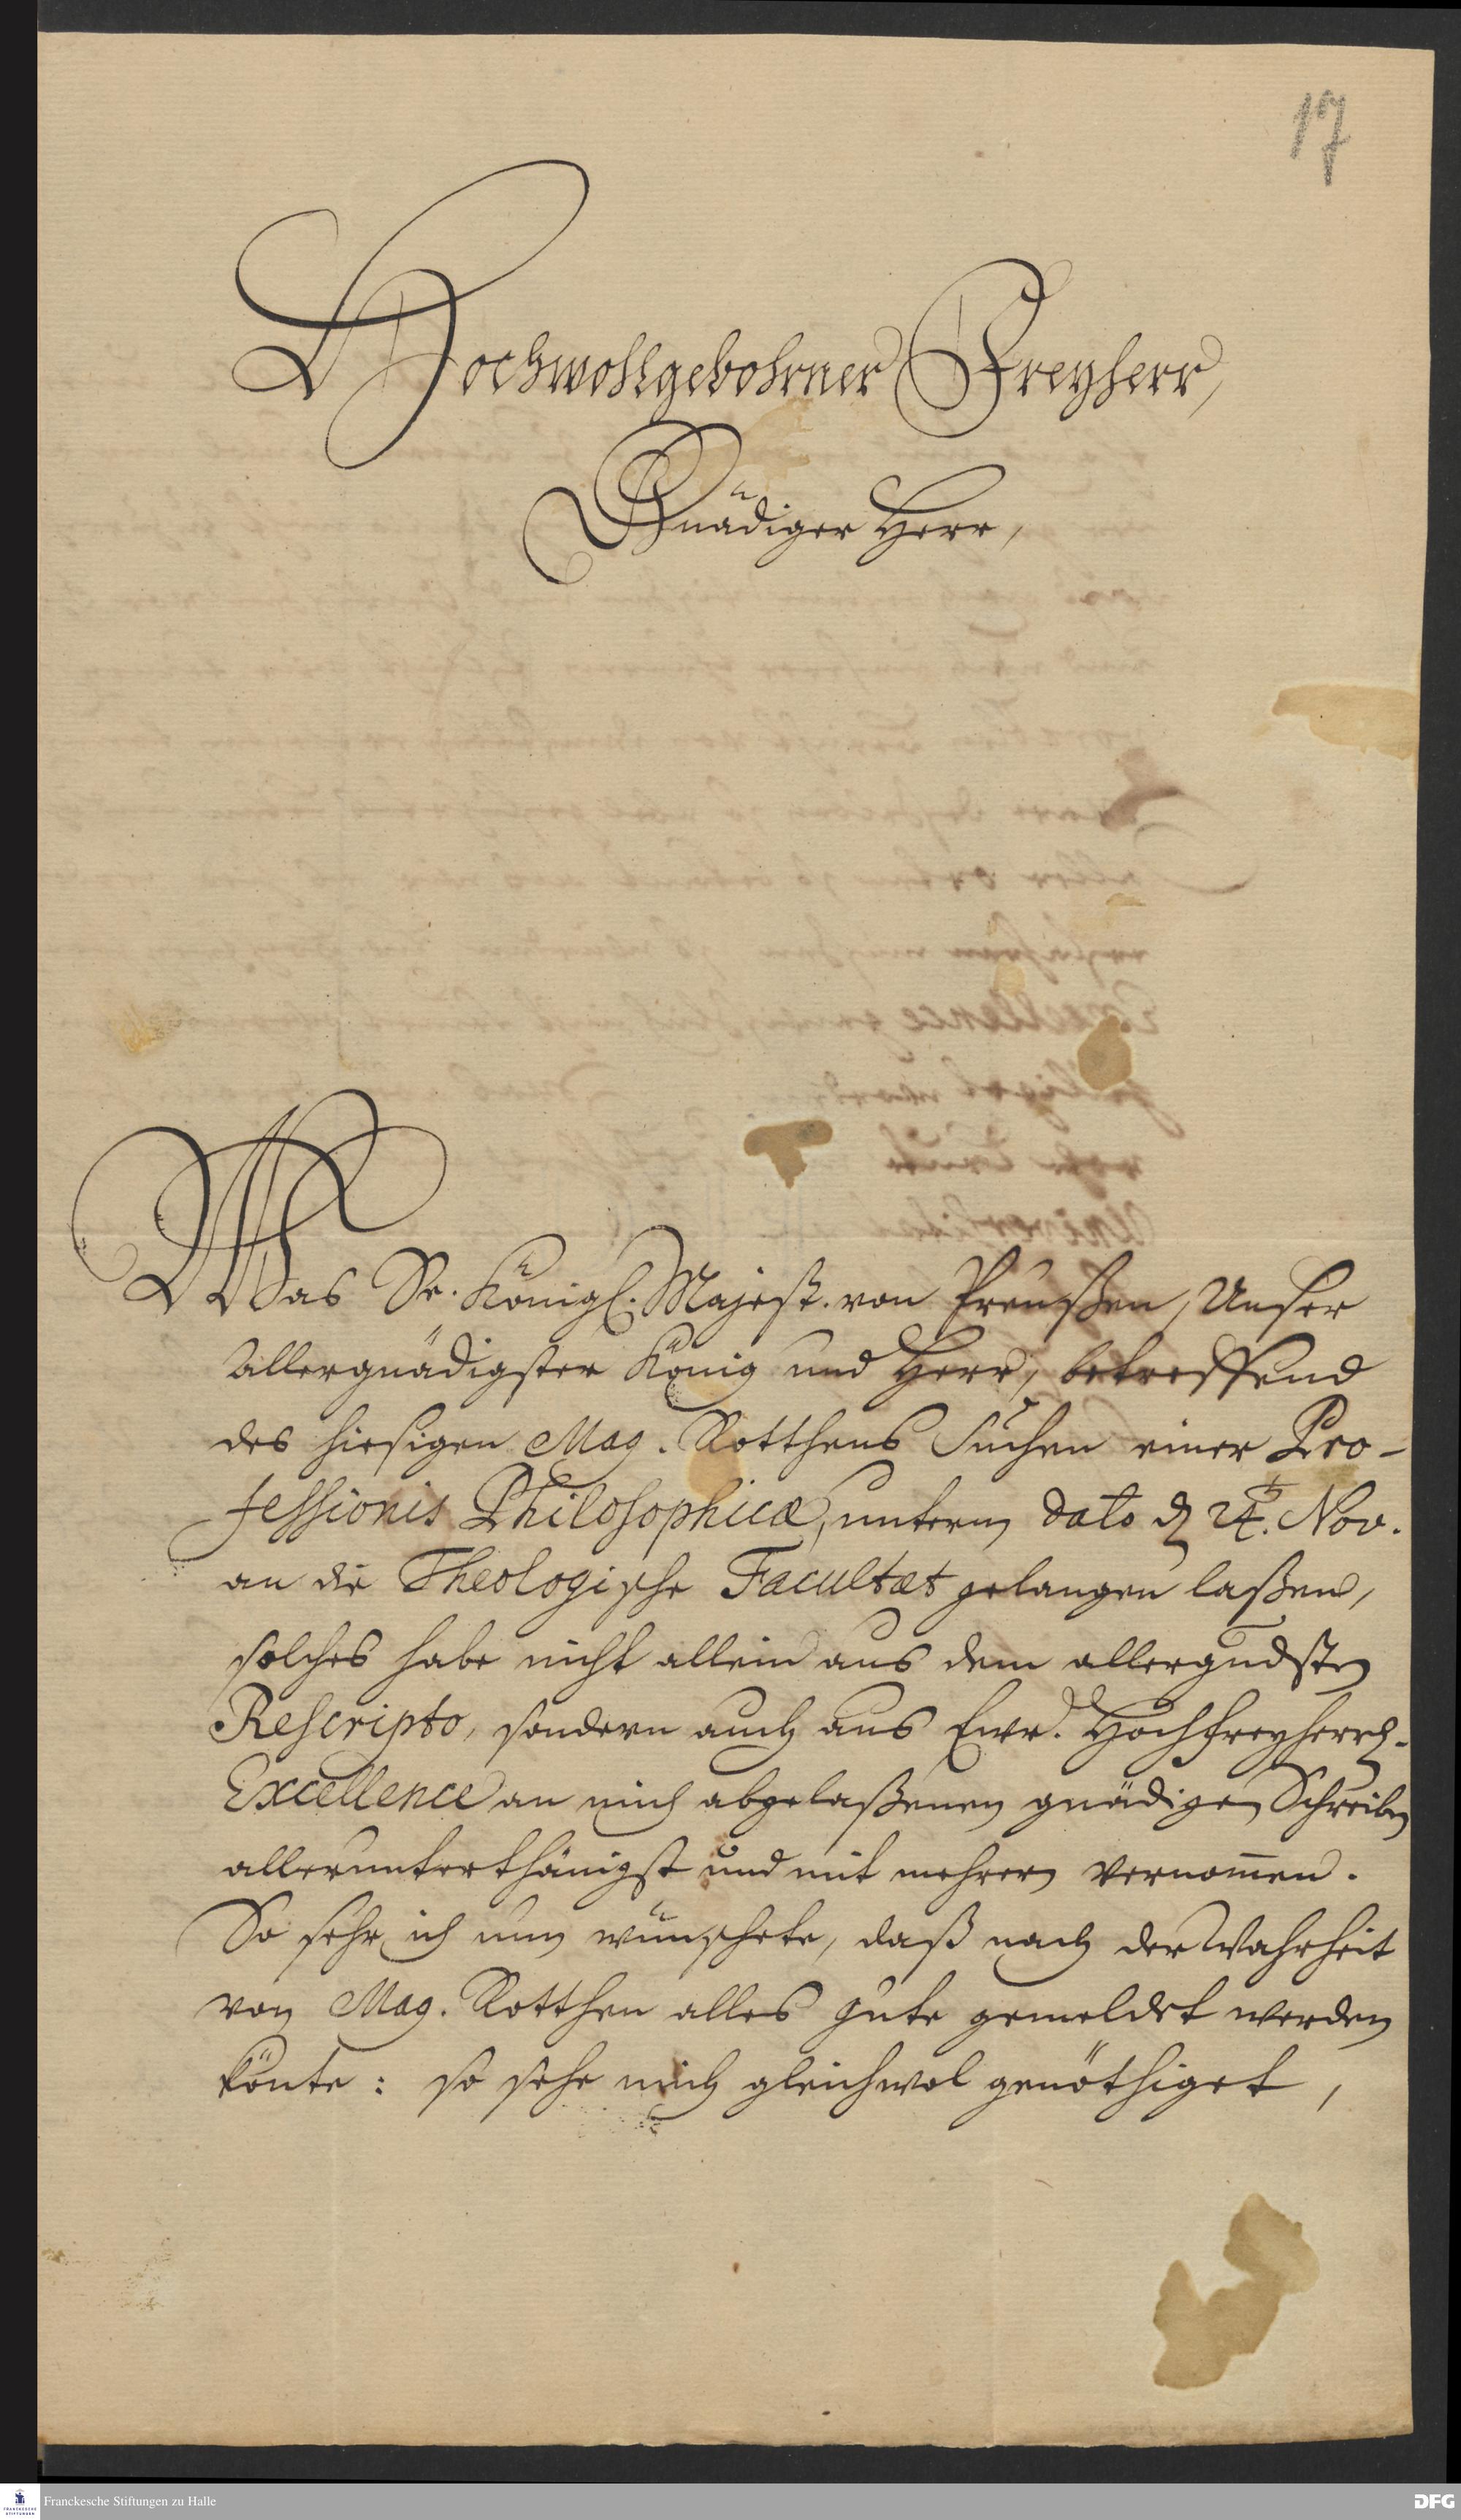 17
Hochwohlgebohrner Freyherr,
Gnädiger Herr,
Was Se. Königl. Majest. von Preußen, Unser
Allergnädigster König und Herr, betreffend
des hiesigen Mag. Rotthens Suchen einer Pro-
fessionis Philosophicæ, unterm dato d 24. Nov.
an die Theologische Facultæt gelangen laßen,
solches habe nicht allein aus dem allergndsten
Rescripto, sondern auch aus Ewr. Hochfreyherrl.
Excellence an mich abgelaßenen gnädigen Schreiben
allerunterthänigst und mit mehrern vernom̄en.
So sehr ich nun wünschete, daß nach der Wahrheit
von Mag. Rotthen alles gute gemeldet werden
könte: so sehe mich gleichwol genöthiget,
Franckesche Stiftungen zu Halle
DFG